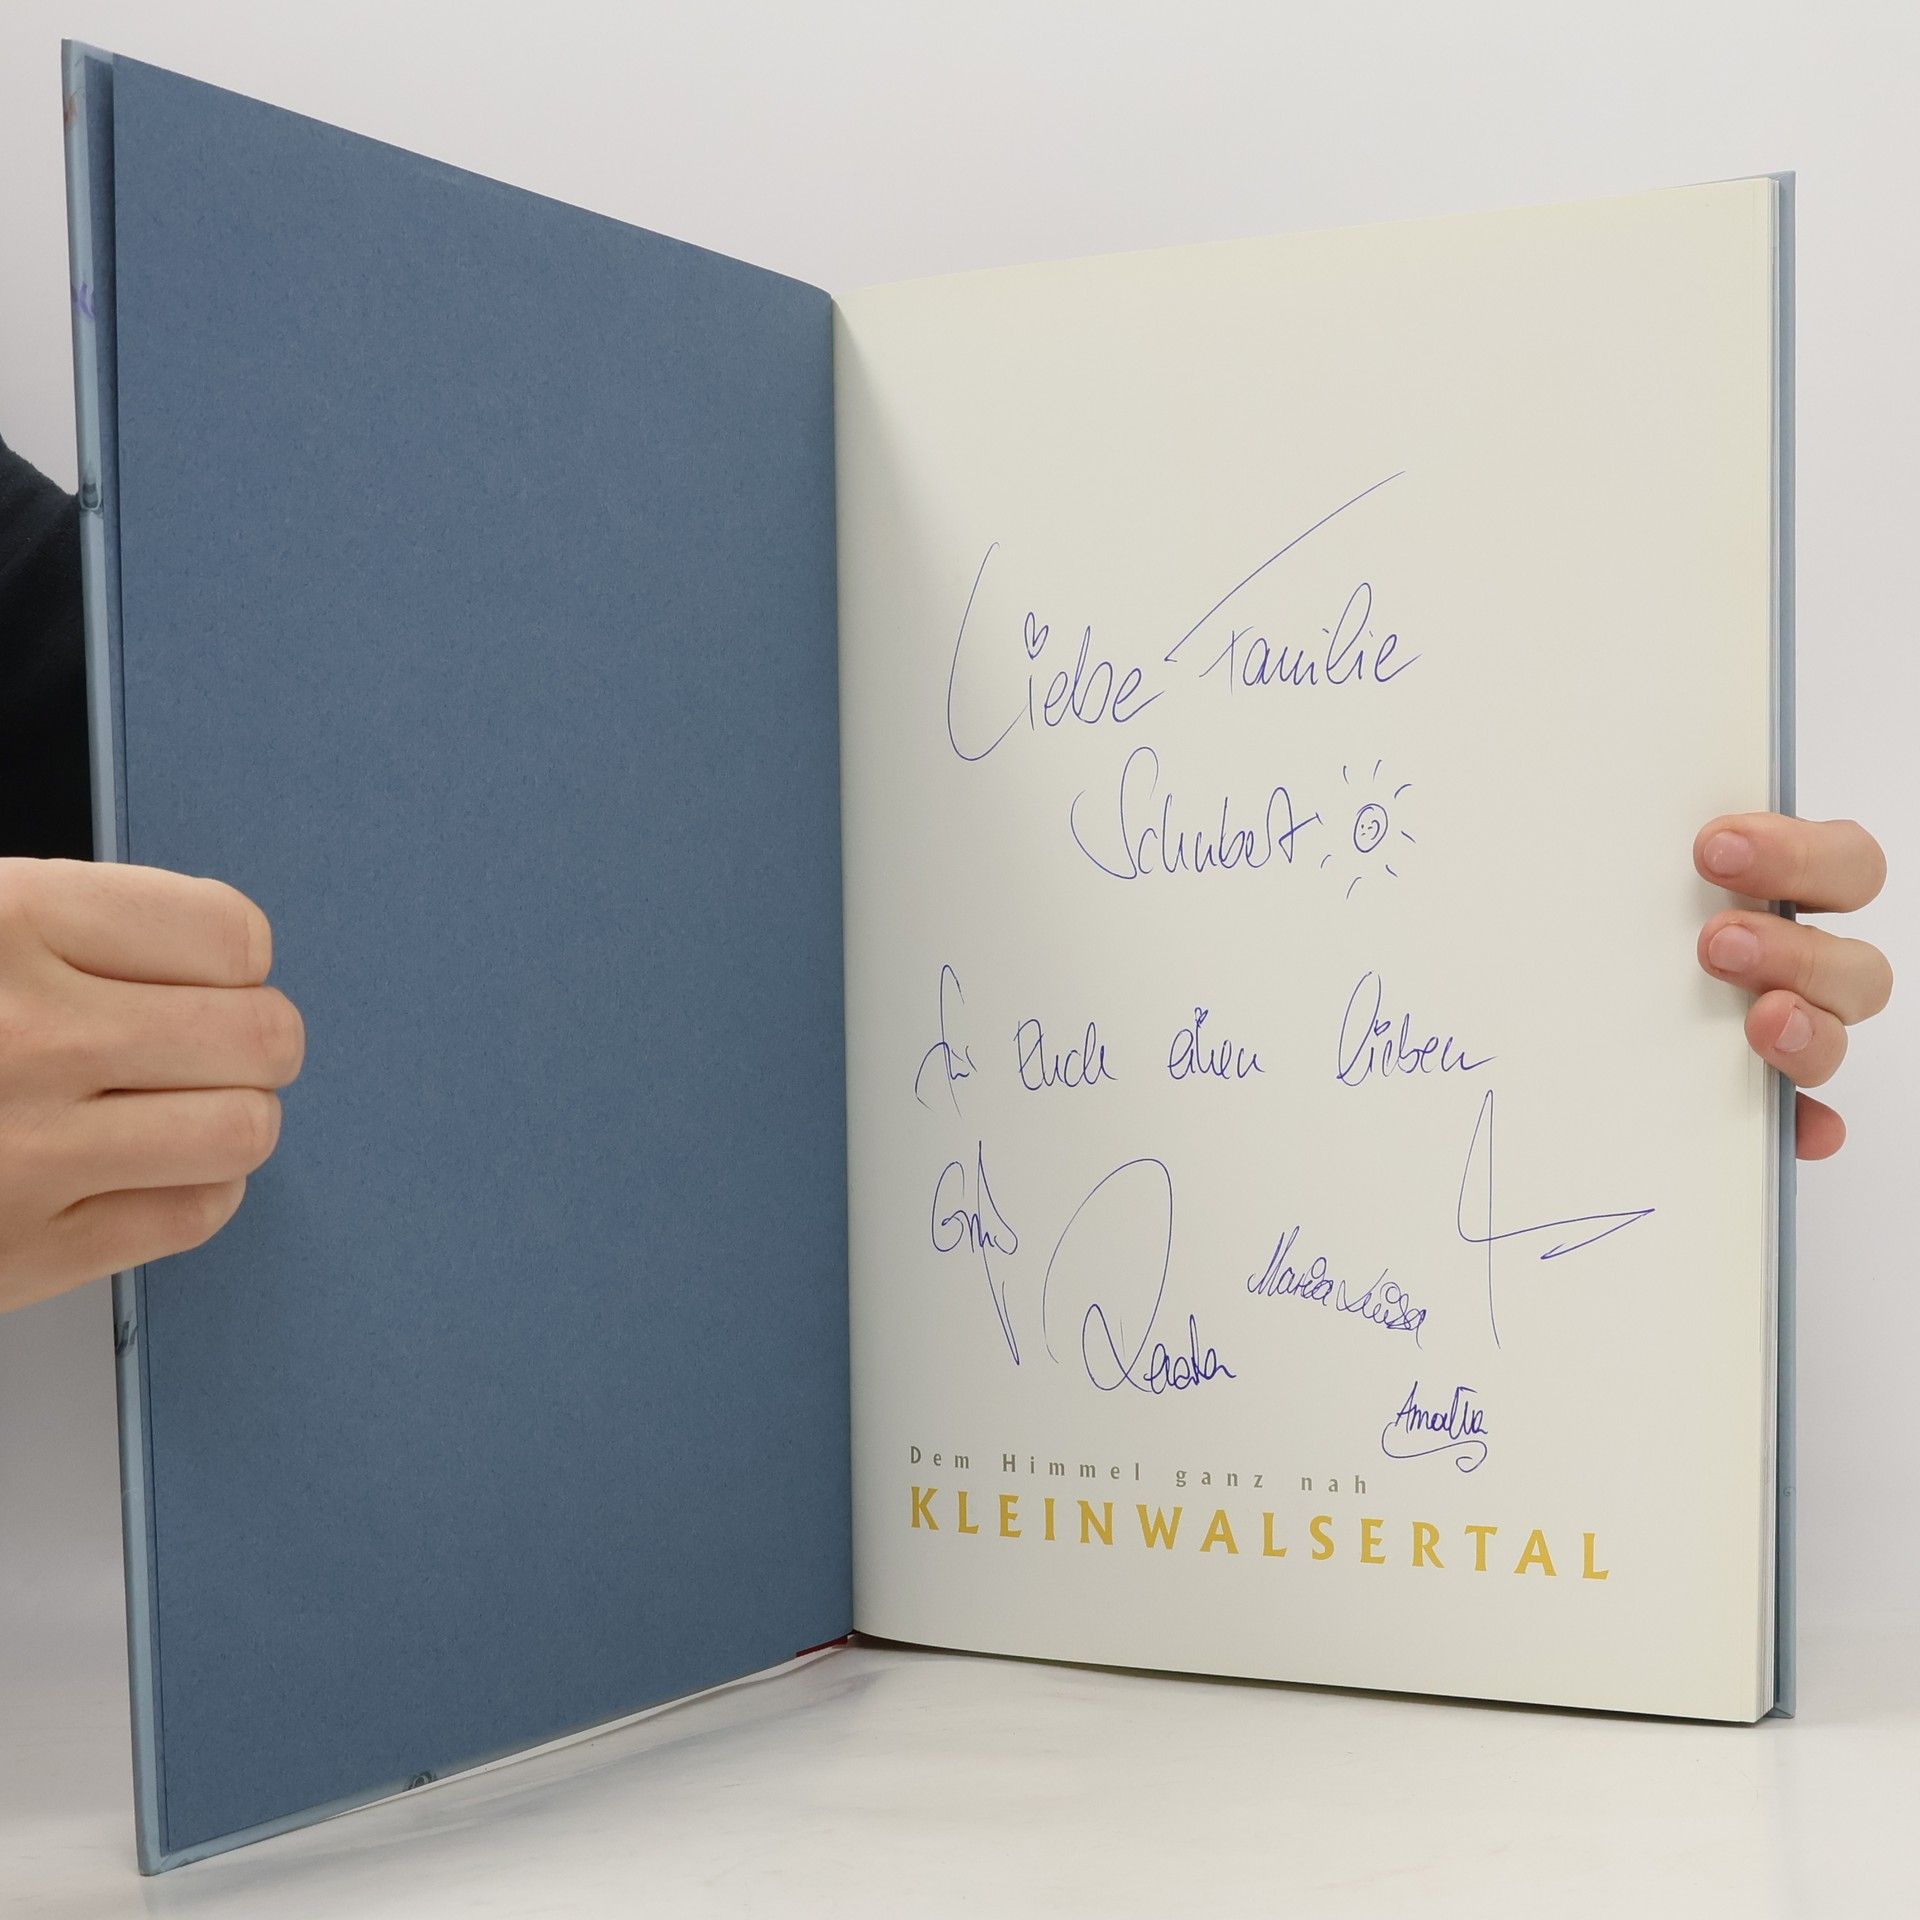 Liebe Familie
Schubert
für Euch einen lieben
Gruß
Maria Luisa
Amalia
Dem Himmel ganz nah
KLEINWALSERTAL